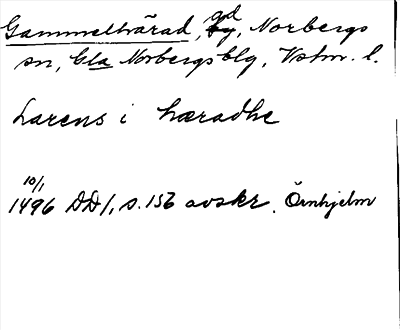 Gammelhärad, gd, Norbergs
sn, Gla Norbergsblg, Vstm. l.
Larens i hæradhe
10/1
1496 DD1, s. 156 avskr. Örnhjelm